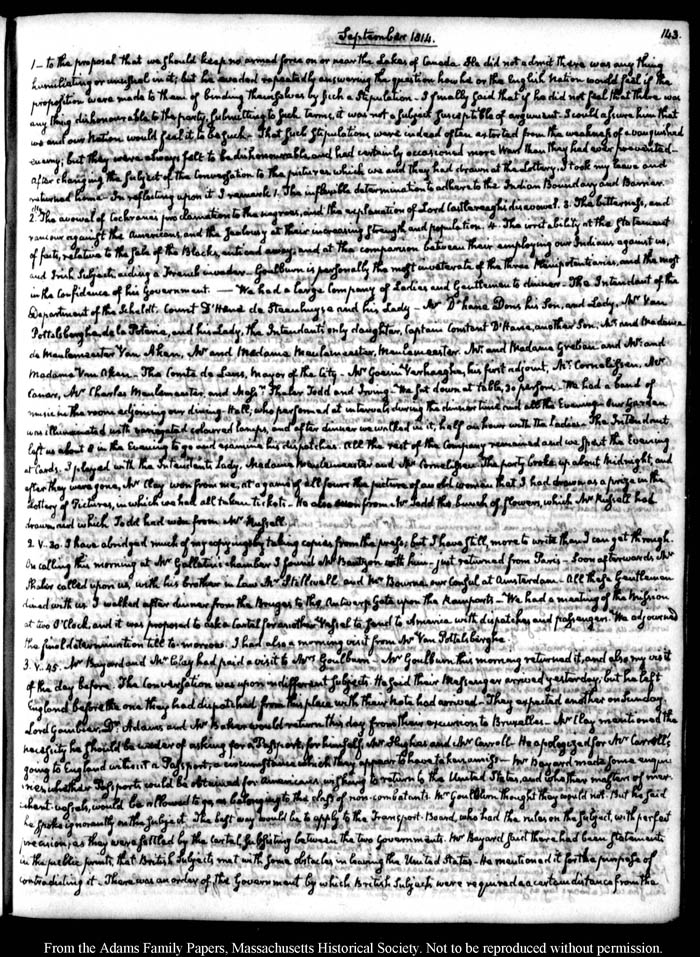 September 1814.
143.
1 – to the proposal that we should keep no armed force on or near the Lakes of Canada. He did not admit there was any thing
humiliating or unusual in it; but he evaded repeatedly answering the question how he or the English Nation would feel if the
proposition were made to them of binding themselves by such a Stipulation – I finally said that if he did not feel that there was
any thing dishonourable to the party, submitting to such terms, it was not a subject susceptible of argument – I could assure him that
we and our Nation would feel it to be such – That such stipulations were indeed often extorted from the weakness of a vanquished
enemy; but they were always felt to be dishonourable and had certainly occasioned more Wars than they had ever prevented –
After changing the subject of the Conversation to the pictures which we and they had drawn at the Lottery I took my leave and
returned home – In reflecting upon it I remark 1. The inflexible determination to adhere to the Indian Boundary and Barrier.
2. The avowal of Cochrane's proclamation to the negroes, and the explanation of Lord Castlereagh's disavowal. 3. The bitterness, and
rancour against the Americans, and the jealousy at their increasing strength and population. 4. The irritability at the Statement
of facts, relative to the sale of the Blacks, enticed away; and at the comparison between their employing our Indians against us,
and Irish Subjects aiding a French invader – Goulburn is personally the most inveterate of the three Plenipotentiaries, and the most
in the confidence of his Government. — We had a large Company of Ladies and Gentlemen to dinner – The Intendant of the
Department of the Scheldt. Count D'Hane de Steenhuyse and his Lady – Mr D'hane Dons his Son, and Lady. Mr Van
Pottelsberghe de la Poterie, and his Lady, the Intendant's only daughter, Captain Constant D'Hane, another Son; Mr and Madame
de Meulemeester Van Aken, Mr and Madame Meulemeester, Meulemeester. Mr and Madame Greban and Mr and
Madame Van Aken – The Comte de Lens, Mayor of the City – Mr Goesin Verhaeghe, his first adjoint, Mr Cornelissen, Mr
Canaer, Mr Charles Meulemeester, and Messrs Shaler Todd and Irving – We sat down at table, 30 persons. We had a band of
music in the room adjoining our dining-Hall, who performed at intervals during the dinner time and all the Evening – Our Garden
was illuminated with variegated coloured lamps, and after dinner we walked in it, half an hour with the Ladies. The Intendant
left us about 8 in the Evening to go and examine his dispatches. All the rest of the Company remained and we spent the Evening
at Cards. I played with the Intendant's Lady, Madame Meulemeester and Mr Cornelissen. The party broke up about Midnight, and
after they were gone, Mr Clay won from me, at a game of all fours the picture of an old woman that I had drawn as a prize in the
Lottery of Pictures, in which we had all taken tickets – He also won from Mr Todd the bunch of flowers, which Mr Russell had
drawn and which Todd had won from Mr Russell.
2. V. 30. I have abridged much of my copying by taking copies from the press, but I have still more to write than I can get through.
On calling this morning at Mr Gallatin's chamber I found Mr Bentzon with him – just returned from Paris – Soon afterwards Mr
Shaler called upon us, with his brother in law Mr Stillwell, and Mr Bourne, our Consul at Amsterdam – All these Gentlemen
dined with us. I walked after dinner from the Bruges to the Antwerp Gate upon the Ramparts – We had a meeting of the Mission
at two O'Clock, and it was proposed to ask a Cartel for another Vessel to send to America with dispatches and passengers. We adjourned
the final determination till to-morrow. I had also a morning visit from Mr Van Pottelsberghe.
3. V. 45. Mr Bayard and Mr Clay had paid a visit to Mrs Goulburn – Mr Goulburn this morning returned it, and also my visit
of the day before. The Conversation was upon indifferent subjects. He said their Messenger arrived yesterday, but he left
England before the one they had dispatched from this place with their Note had arrived – They expected another on Sunday.
Lord Gambier, Dr Adams and Mr Baker would return this day from their excursion to Bruxelles – Mr Clay mentioned the
necessity he should be under of asking for a Passport, for himself, Mr Hughes and Mr Carroll – He apologized for Mr Carroll's
going to England without a Passport; a circumstance which they appear to have taken amiss – Mr Bayard made some enquiries
whether Passports could be obtained for Americans, wishing to return to the United States, and whether masters of mer-
chant-vessels, would be allowed to go, as belonging to the class of non-combatants. Mr Goulburn thought they would not. But he said
he spoke ignorantly on the subject. The best way would be to apply to the Transport-Board, who had the rules on the subject, with perfect
precision, as they were settled by the cartel subsisting between the two Governments. Mr Bayard said there had been statements
in the public prints, that British Subjects met with some obstacles in leaving the United States – He mentioned it for the purpose of
contradicting it – There was an order of the Government by which British Subjects were required a certain distance from the
From the Adams Family Papers, Massachusetts Historical Society. Not to be reproduced without permission.